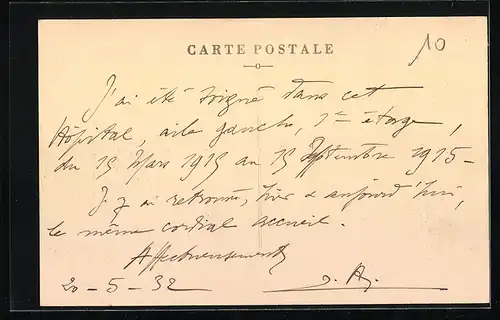 CARTE POSTALE
10
J'ai été soigné dans cet
Hôpital, aile gauche, 1re étage,
du 15 Mars 1915 au 15 Septembre 1915 -
J'y ai retrouvé, hier & aujourd'hui,
le même cordial accueil.
Affectueusement
20 - 5 - 32